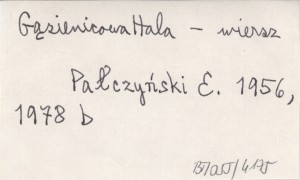 Gąsienicowa Hala – wiersz
Pałczyński E. 1956,
1978 b